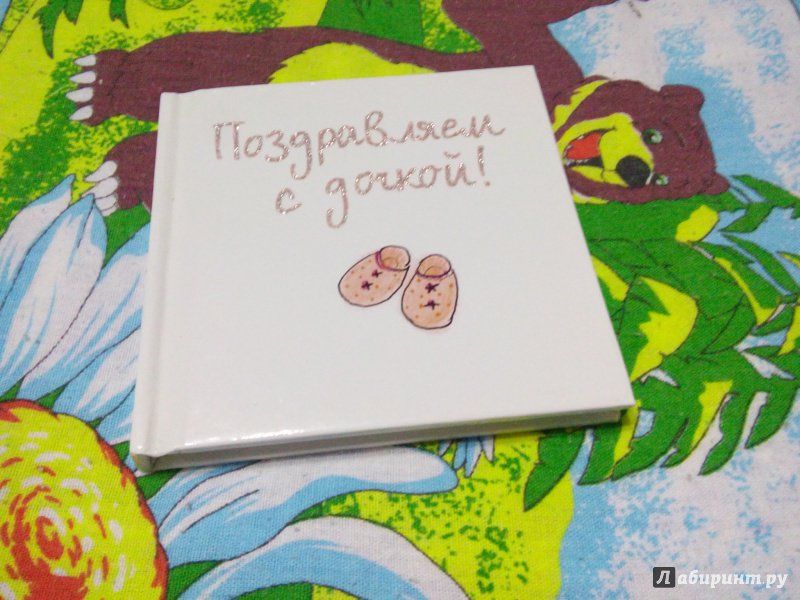 Поздравляем
с дочкой!
Лабиринт.ру